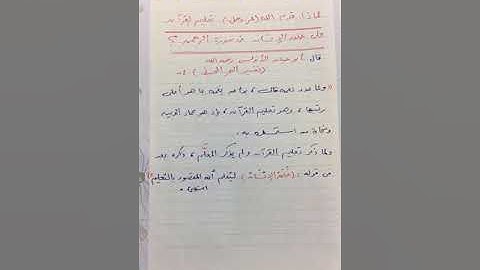 لماذا قدم الله (عز وجل) تعليم القرآن
على خلق الإنسان في سورة الرحمن ؟
قال أبو حيان الأندلسي رحمه الله
(تفسير البحر المحيط) :-
((ولما عدد نعمه تعالى ، بدأ من نعمه بما هو أعلى
رتبها ، وهو تعليم القرآن ، إذ هو عماد الدين
ونجاة من استمسك به .
ولما ذكر تعليم القرآن ولم يذكر المعلَّم ، ذكره بعد
في قوله : (خلق الإنسان) ليُعلم أنه المقصود بالتعليم))
انتهى .